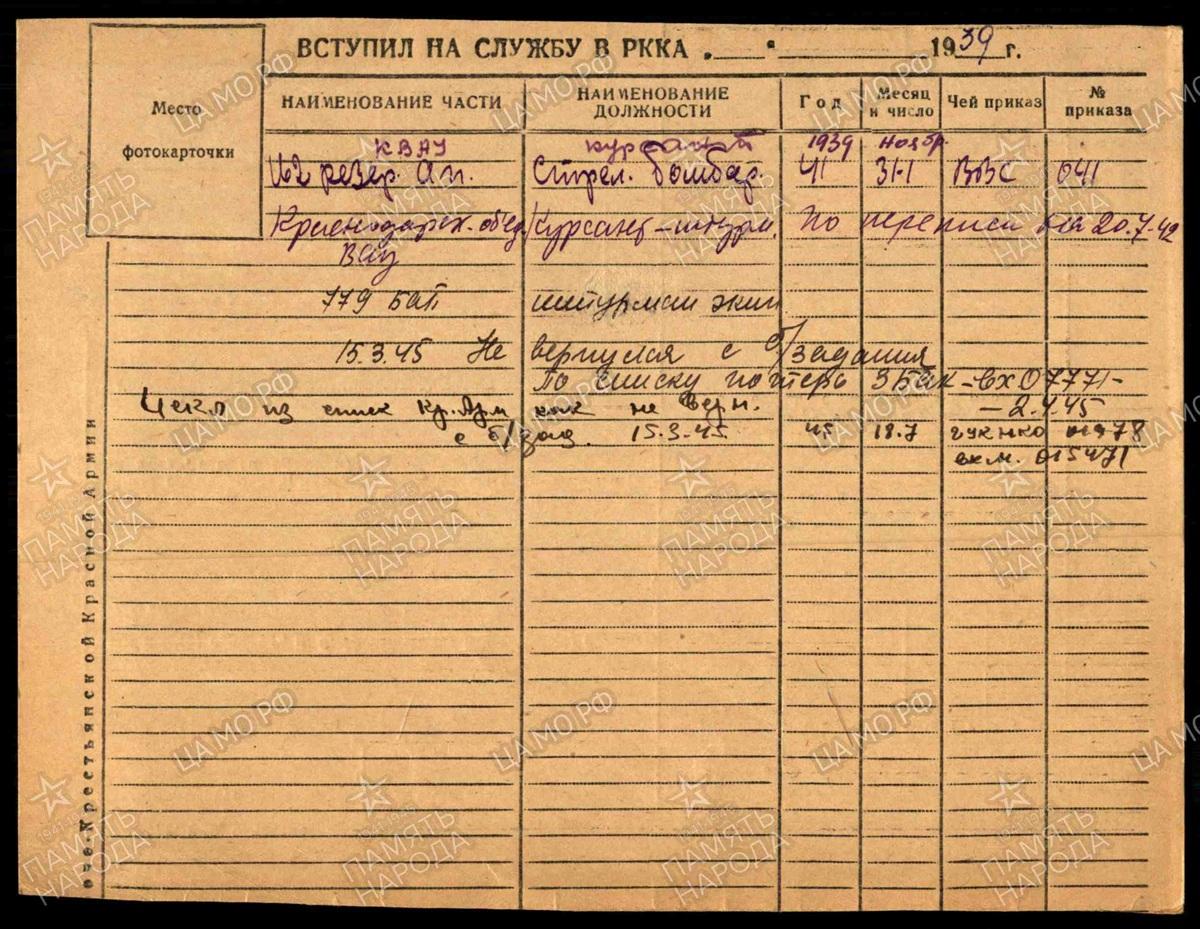 ВСТУПИЛ НА СЛУЖБУ В РККА „ “ 1939 г.
Место фотокарточки
НАИМЕНОВАНИЕ ЧАСТИ НАИМЕНОВАНИЕ ДОЛЖНОСТИ Год Месяц и число Чей приказ № приказа
КВАУ курсант 1939 ноябр.
резер. ап. Стрел. бомбар. 41 31-1 ВВС 041
Краснодарск. объед. Курсант-штурм. по переписи на 20.7-42
ВАУ
779 БАП штурман экип
15.3.45 Не вернулся с б/задания
по списку потерь 3 Бак - вх 07771-
- 2.4.45
Искл из спис Кр. Арм как не верн.
с б/зад. 15.3-45 45 18.7 ГУКНКО 01978
вкл. 015471
оче-Крестьянской Красной Армии
ЦАМО.РФ
1941-1945
ПАМЯТЬ НАРОДА